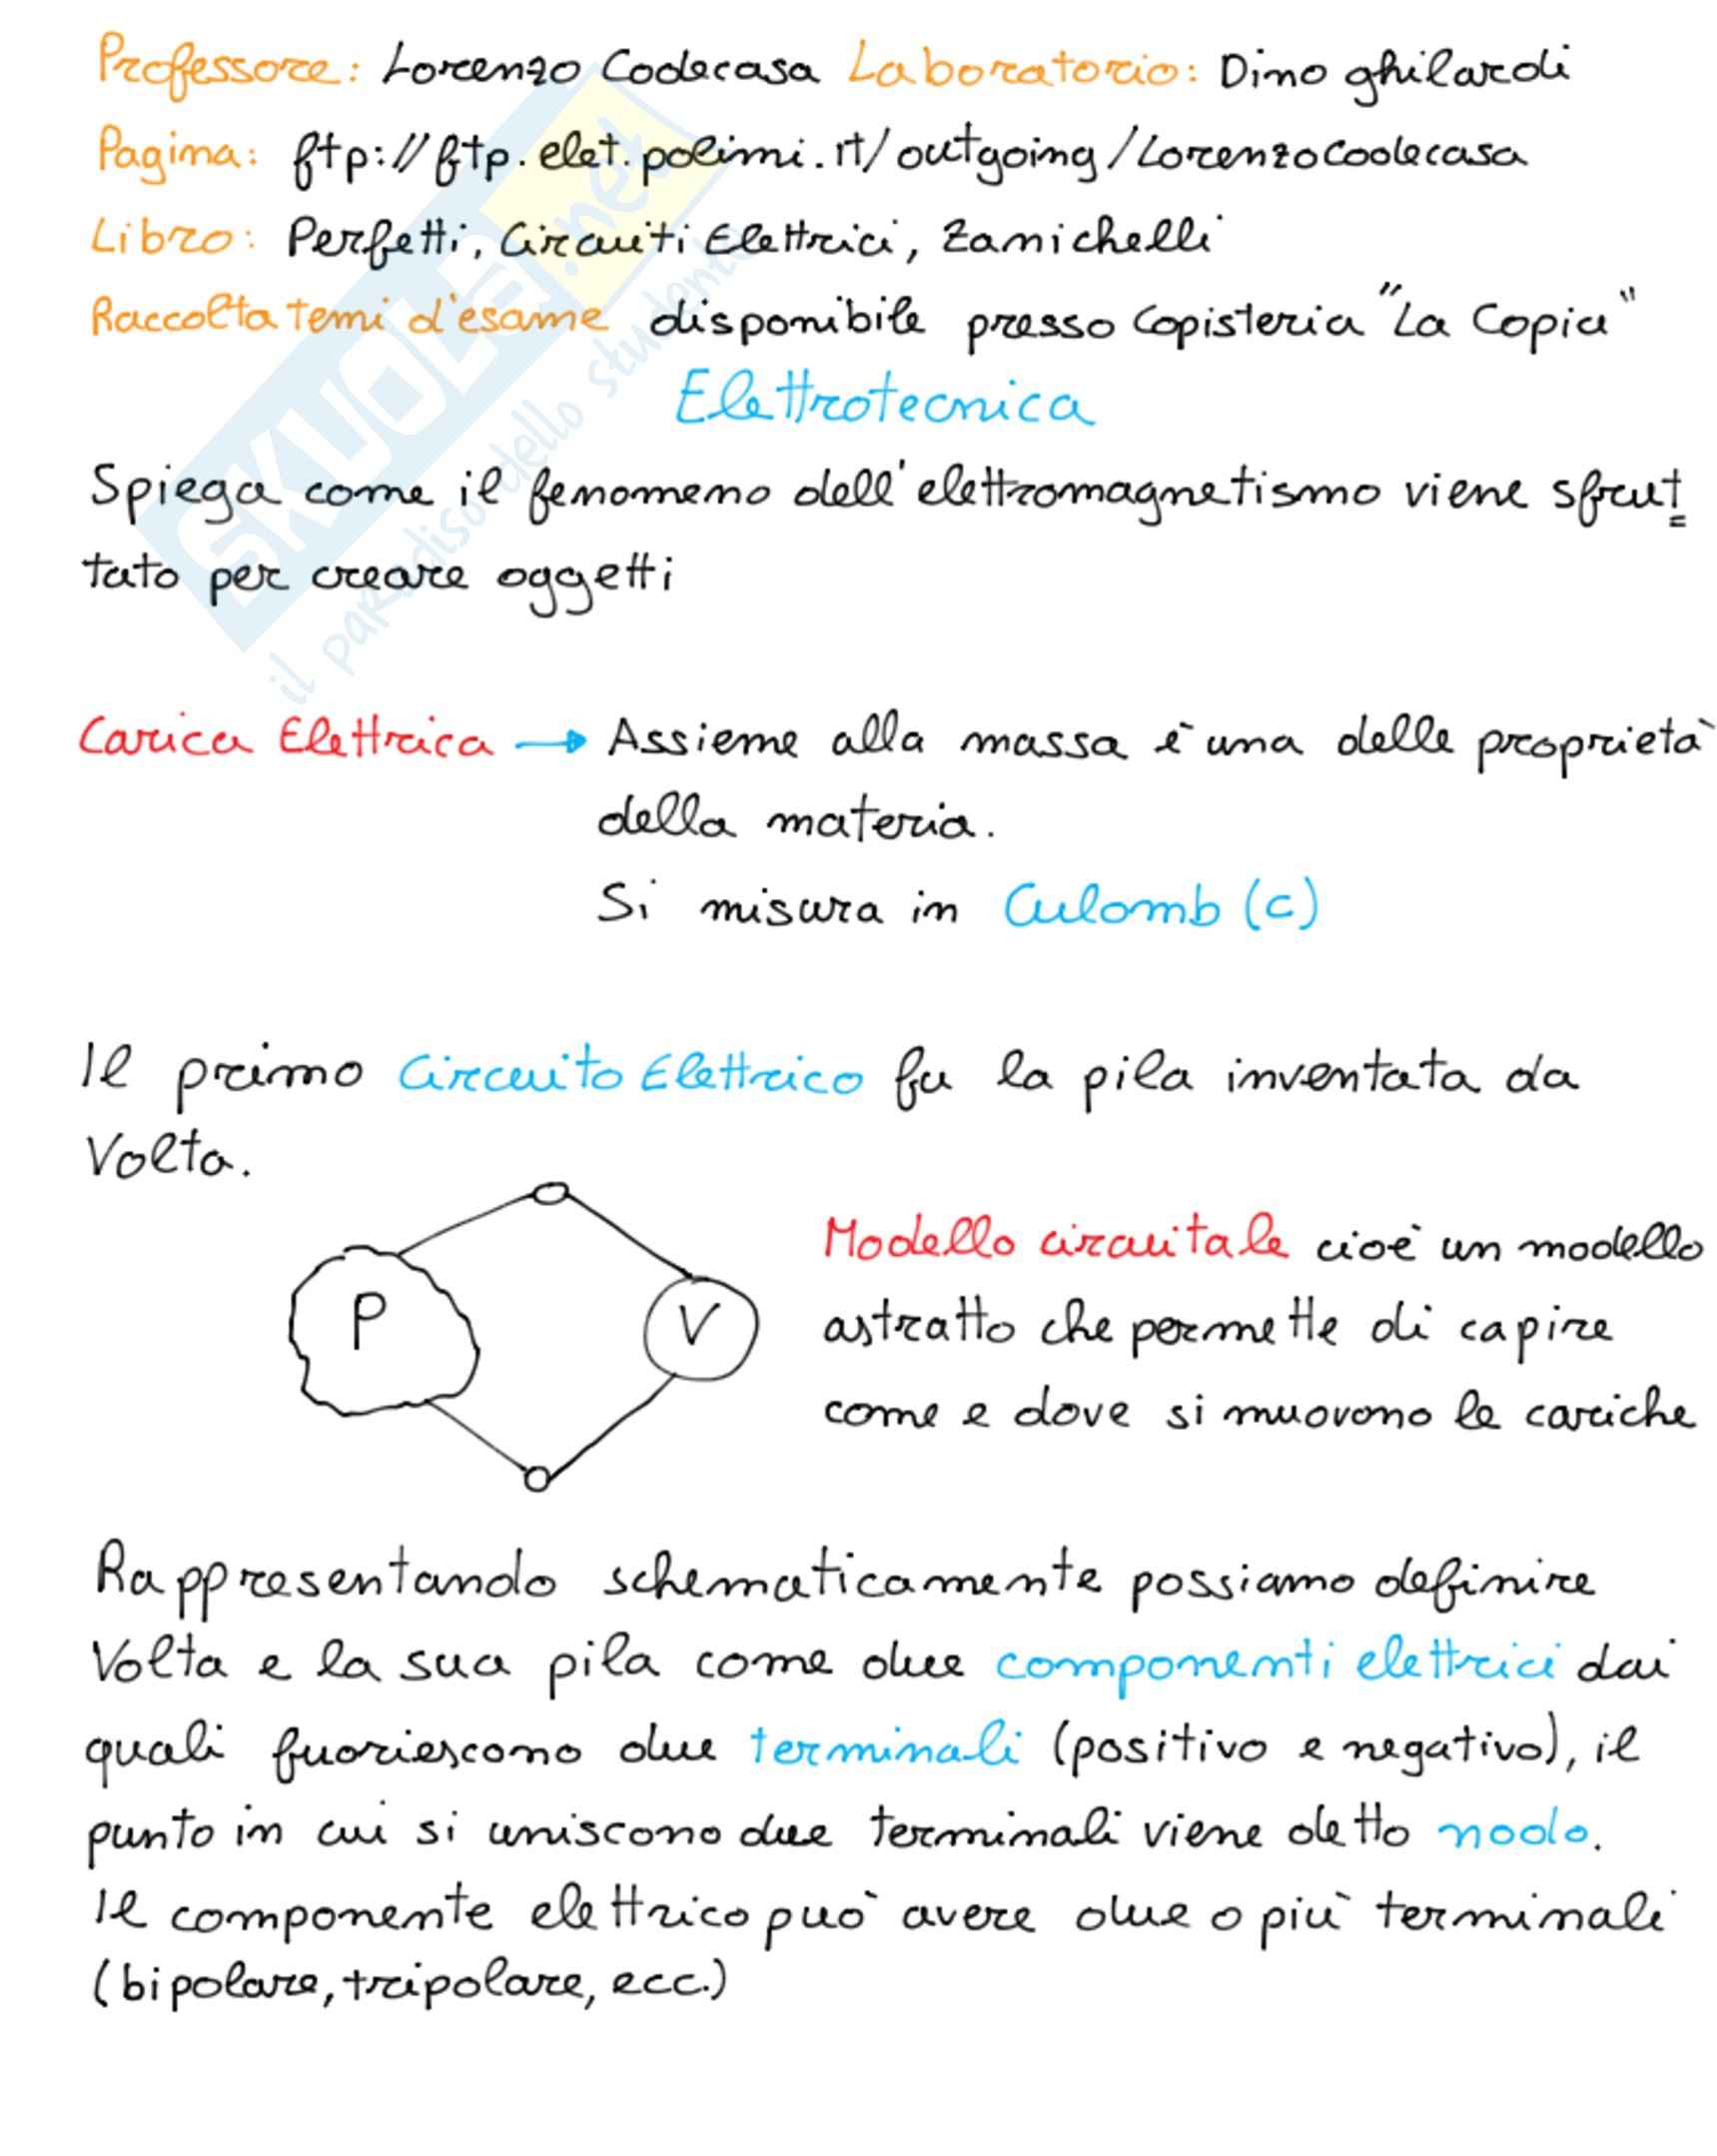 Professore: Lorenzo Codecasa Laboratorio: Dino ghilardi
Pagina: ftp://ftp.elet.polimi.it/outgoing/LorenzoCodecasa
Libro: Perfetti, Circuiti Elettrici, Zanichelli
Raccolta temi d'esame disponibile presso Copisteria "La Copia"
Elettrotecnica
Spiega come il fenomeno dell'elettromagnetismo viene sfrut
tato per creare oggetti
Carica Elettrica → Assieme alla massa è una delle proprietà
della materia.
Si misura in Culomb (c)
Il primo Circuito Elettrico fu la pila inventata da
Volta.
P
V
Modello circuitale cioè un modello
astratto che permette di capire
come e dove si muovono le cariche
Rappresentando schematicamente possiamo definire
Volta e la sua pila come due componenti elettrici dai
quali fuoriescono due terminali (positivo e negativo), il
punto in cui si uniscono due terminali viene detto nodo.
Il componente elettrico può avere due o più terminali
(bipolare, tripolare, ecc.)
SKUOLA.net
il paradiso dello studente